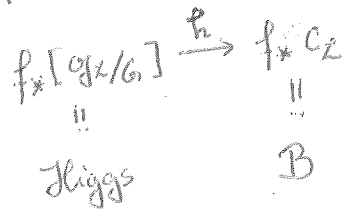 f_* [𝔤_𝓛/G] —h→ f_* C_𝓛
|| ||
Higgs B